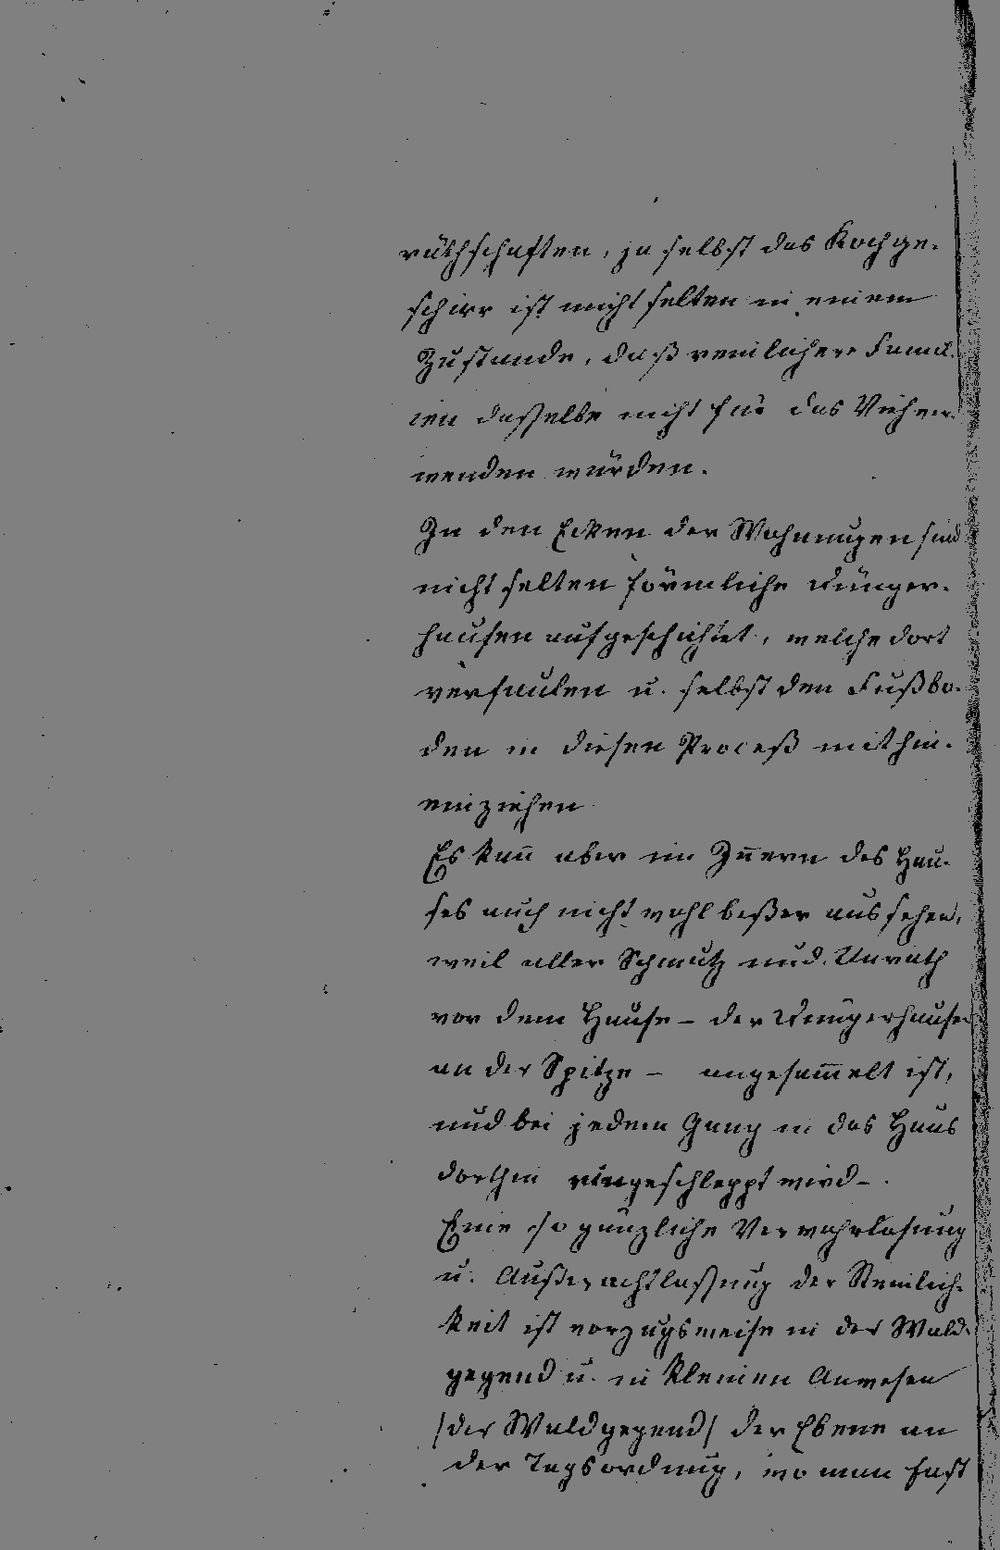 räthschaften, ja selbst das Kochge-
schirr ist nicht selten in einem
Zustande, daß reinlichere Famil-
ien dasselbe nicht für das Vieh ver-
wenden würden.
In den Ecken der Wohnungen sind
nicht selten förmliche Dünger-
haufen aufgeschichtet, welche dort
verfaulen u. selbst den Fußbo-
den in diesen Proceß mit hin-
einziehen
Es kan̄ aber im In̄ern des Hau-
ses auch nicht wohl beßer aussehen,
weil aller Schmutz und Unrath
vor dem Hause – der Düngerhaufen
an der Spitze – angesam̄elt ist,
und bei jedem Gang in das Haus
dorthin eingeschleppt wird –.
Eine so gänzliche Verwahrlosung
u. Außerachtlassung der Reinlich-
keit ist vorzugsweise in der Wald-
gegend u. in kleinen Anwesen
/der Waldgegend/ der Ebene an
der Tagsordnung, wo man fast